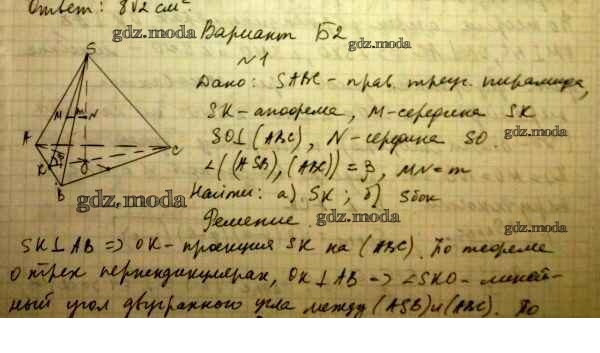 Ответ: 8√2 см².
gdz.moda
Вариант Б2
gdz.moda
№1
Дано: SABC - прав. треуг. пирамида,
SK - апофема, M - середина SK
gdz.moda
SO⊥(ABC), N - середина SO.
∠((ASB),(ABC)) = β, MN = m
Найти: а) SK; б) Sбок
gdz.moda
gdz.moda
Решение.
gdz.moda
SK⊥AB => OK - проекция SK на (ABC). По теореме
о трех перпендикулярах, OK⊥AB => ∠SKO - линей-
ный угол двугранного угла между (ASB) и (ABC). По
S
M
m
N
A
K
β
O
B
C